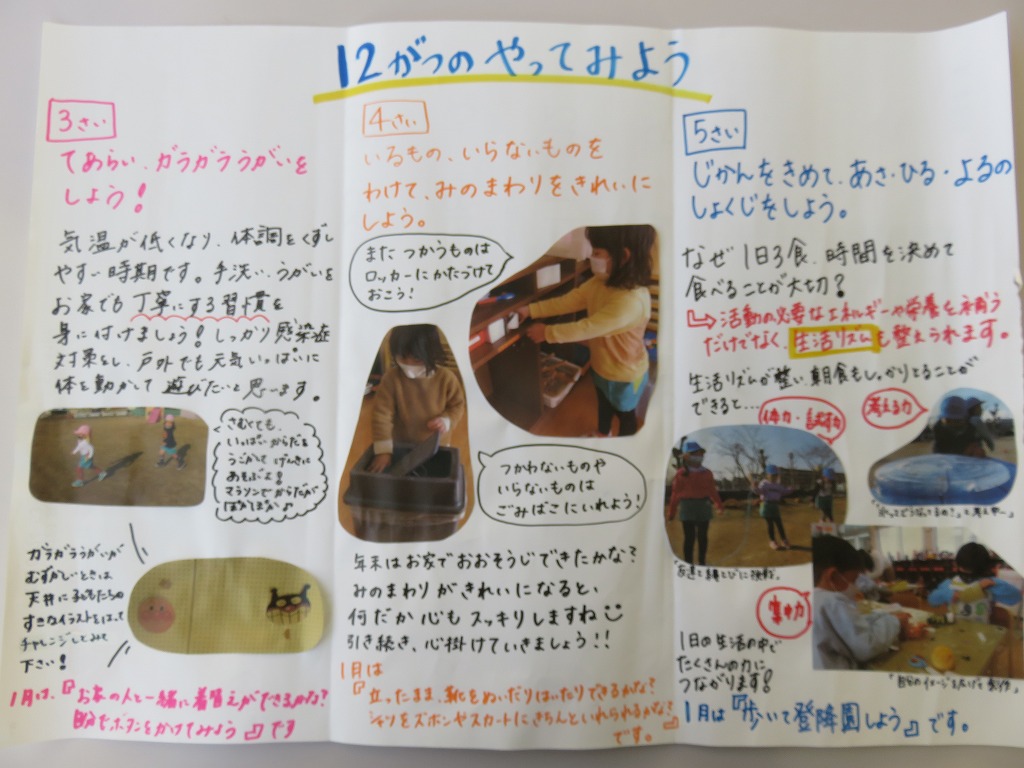 12がつのやってみよう
3さい
てあらい、ガラガラうがいを
しよう!
気温が低くなり、体調をくずし
やすい時期です。手洗い、うがいを
お家でも丁寧にする習慣を
身に付けましょう!しっかり感染症
対策をし、戸外でも元気いっぱいに
体を動かして遊びたいと思います。
さむくても、
いっぱいからだを
うごかして げんきに
あそぶよ!
マラソンでからだが
ぽかぽか♪
ガラガラうがいが
むずかしいときは
天井に子どもたちの
すきなイラストをはって
チャレンジしてみて
下さい!
1月は、『お家の人と一緒に着替えができるかな?
自分でボタンをかけてみよう』です
4さい
いるもの、いらないものを
わけて、みのまわりをきれいに
しよう。
また つかうものは
ロッカーにかたづけて
おこう!
つかわないものや
いらないものは
ごみばこにいれよう!
年末はお家でおおそうじできたかな?
みのまわりがきれいになると、
何だか心もスッキリしますね
引き続き、心掛けていきましょう!!
1月は
『立ったまま、靴をぬいだりはいたりできるかな?
シャツをズボンやスカートにきちんといれられるかな?』
です。
5さい
じかんをきめて、あさ・ひる・よるの
しょくじをしよう。
なぜ1日3食、時間を決めて
食べることが大切?
活動の必要なエネルギーや栄養を補う
だけでなく、生活リズムも整えられます。
生活リズムが整い、朝食もしっかりとることが
できると…
体力・
考える力
友達と縄とびに挑戦。
集中力
1日の生活の中で
たくさんの力に
つながります!
1月は『歩いて登降園しよう』です。